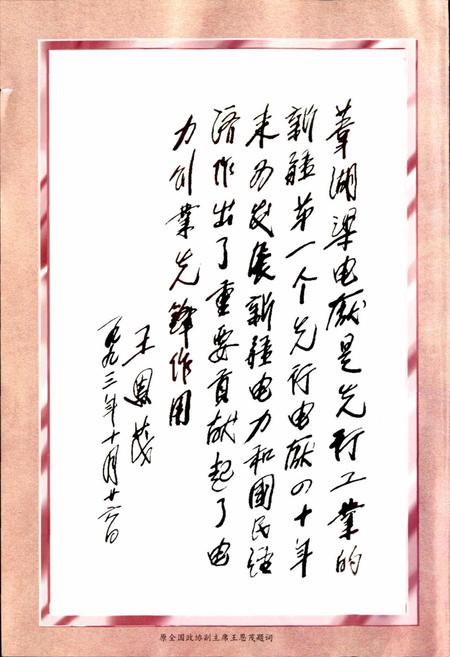 苇湖梁电厰是先行工业的
新疆第一个先行电厰四十年
来为发展新疆电力和國民经
济作出了重要贡献起了电
力创業先锋作用
王恩茂
一九九三年十月廿六日
原全国政协副主席王恩茂题词